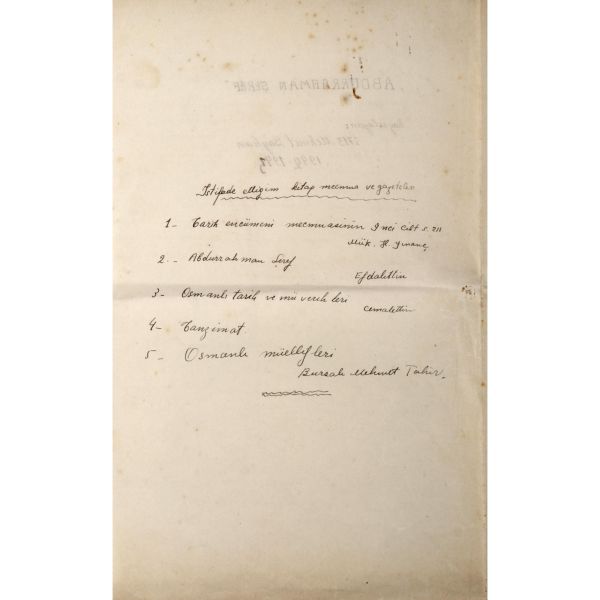 ABDURRAHMAN ŞEREF
Mehmet
İstifade ettiğim kitap mecmua ve gazeteler
1- Tarih encümeni mecmuasinin 9 nci cilt s. 211
Mük. H. Yinanç
2.- Abdurrahman Şeref
Efdalettin
3- Osmanlı tarih ve müverihleri
Cemalettin
4- Tanzimat
5- Osmanlı müellifleri
Bursalı Mehmet Tahir.